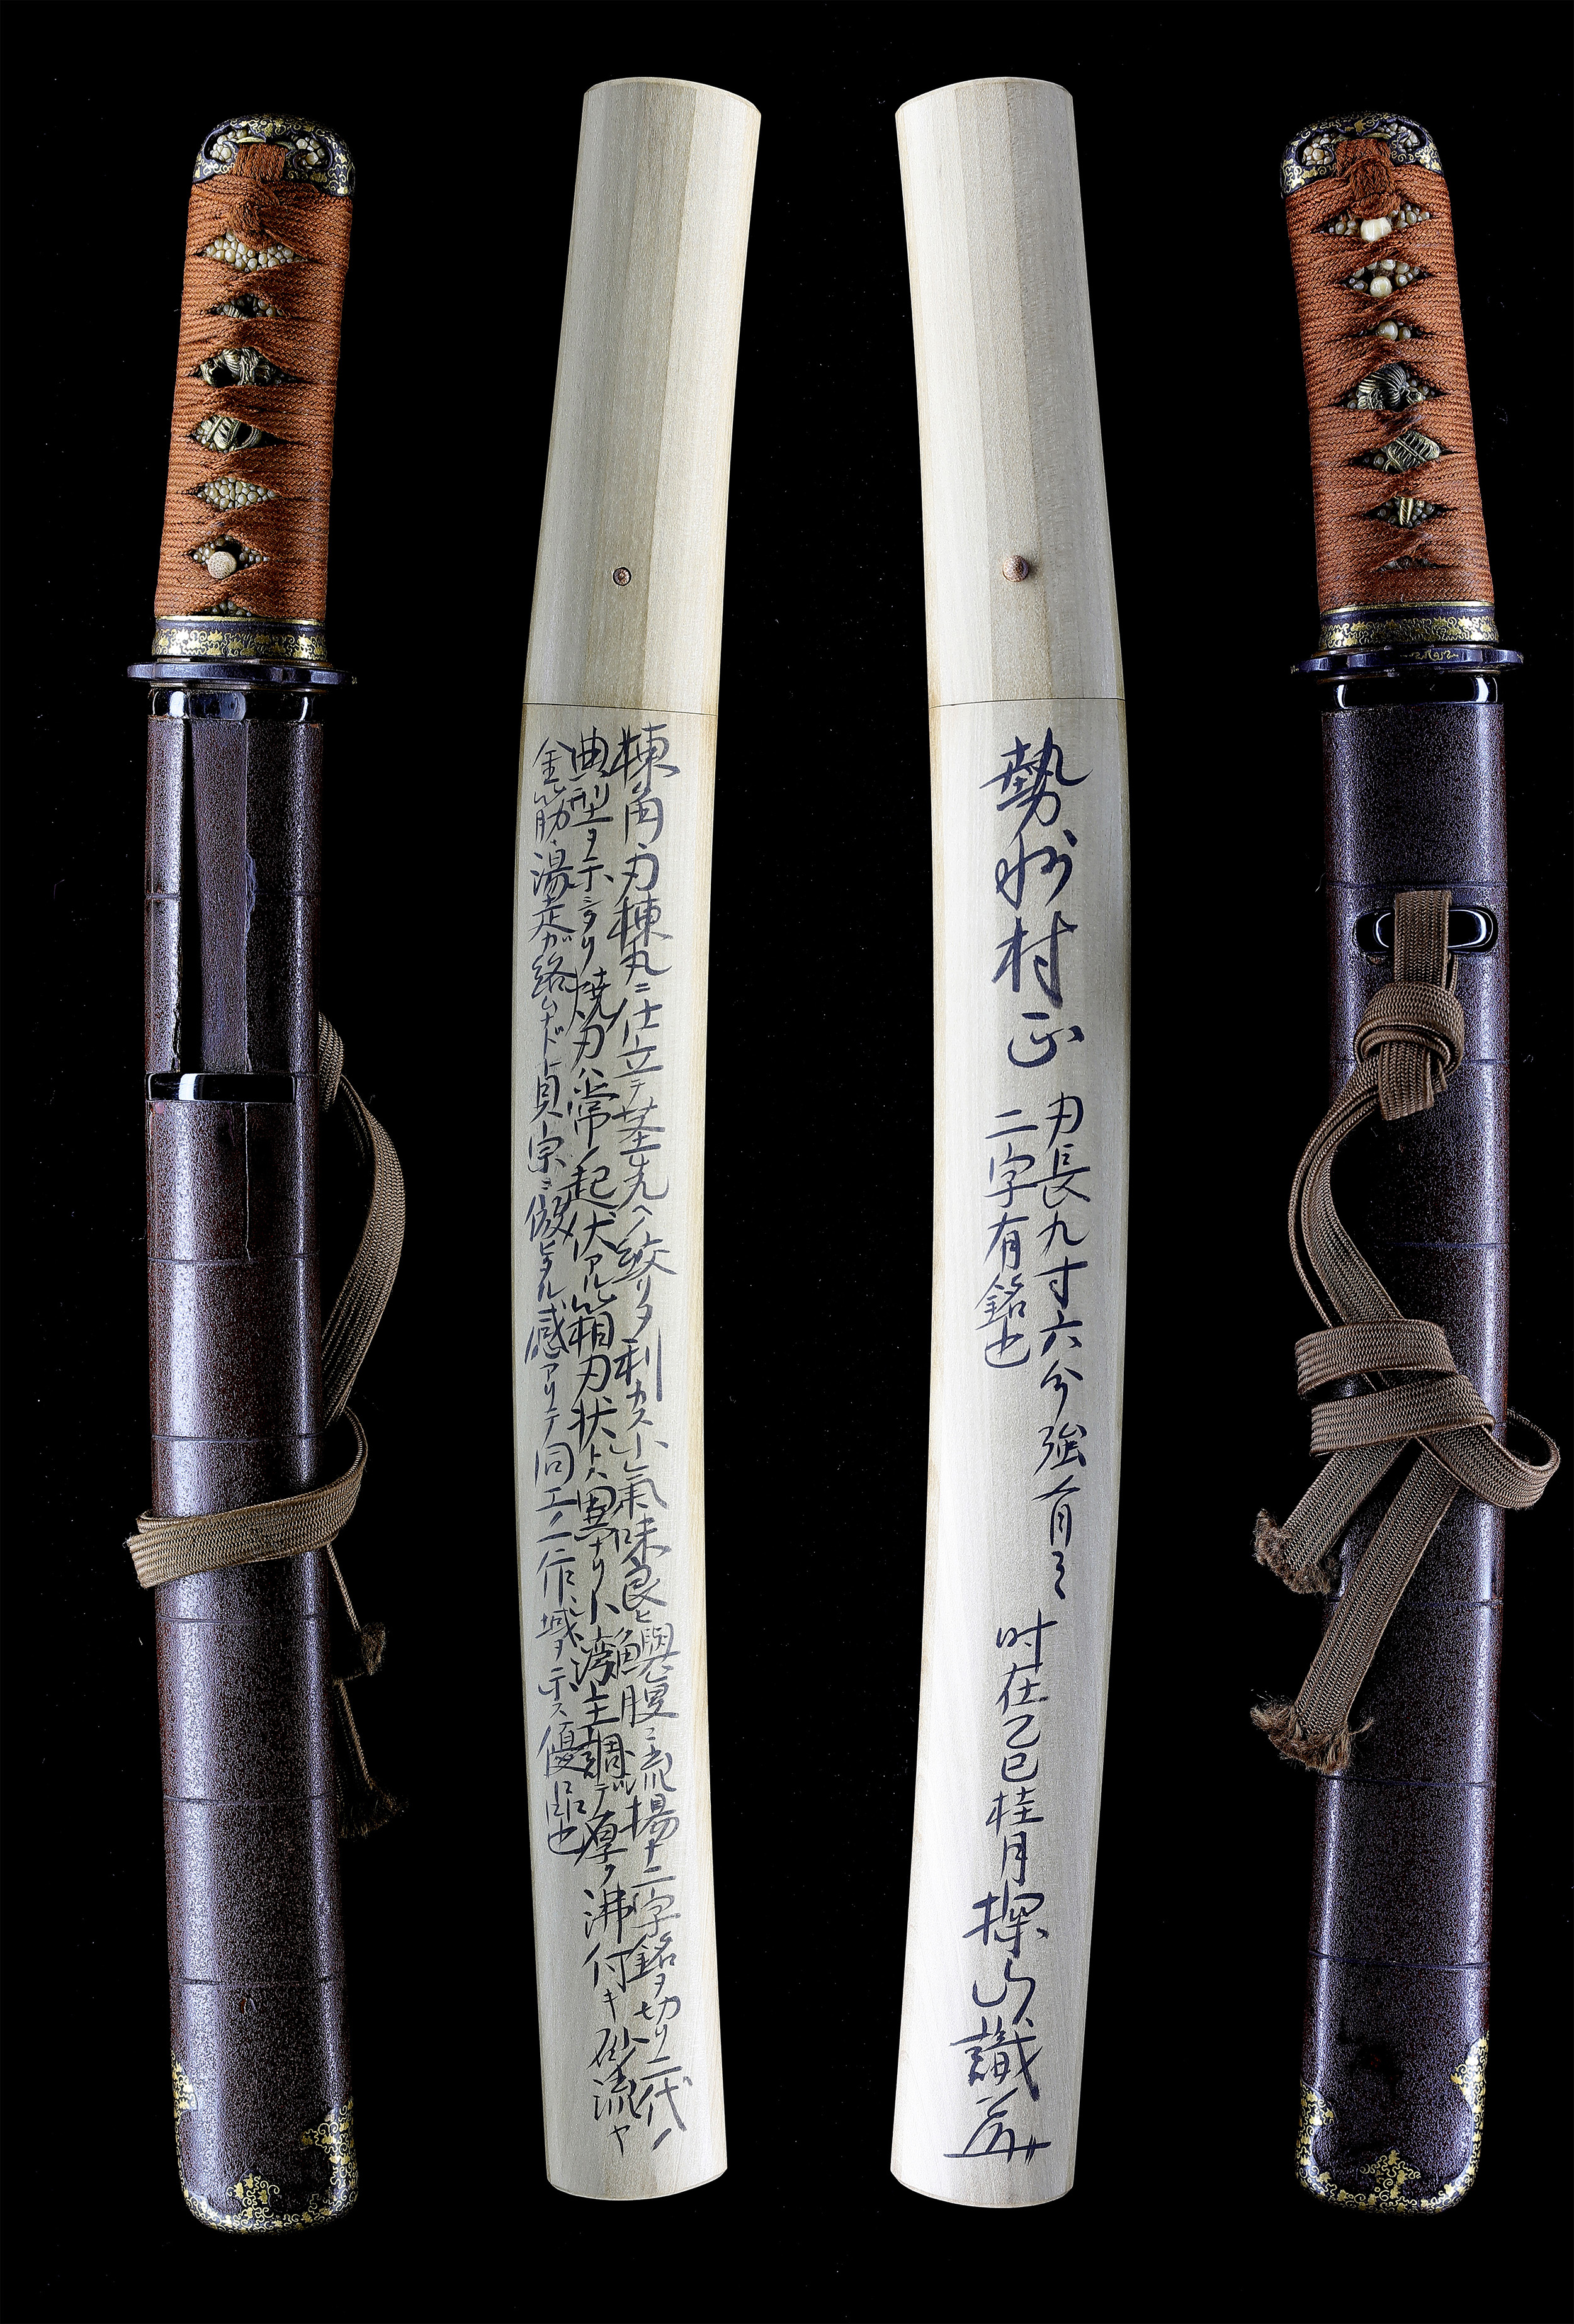 勢州村正
刃長九寸六分強有之
二字有銘也
时在乙巳桂月探山識
棟角刃棟丸ニ仕立テ茎先ヘノ絞リヲ利カス小氣味良ヒ鱮腹ニ流暢ナ二字銘ヲ切リ二代ノ
典型ヲ示シタリ焼刃ハ常ノ起伏アル箱刃状トハ異ナリ小湾主調ニテ厚ク沸付キ砂流ヤ
金筋・湯走ガ絡ムナド貞宗ニ倣ヒタル感アリテ同工ノ一作域ヲ示ス優品也